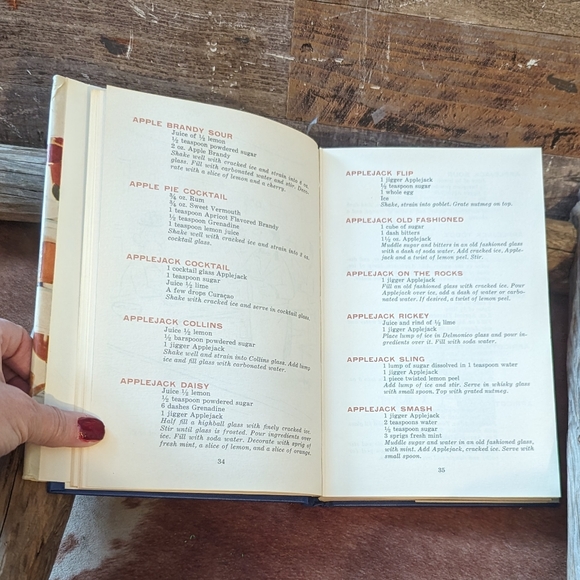 APPLE BRANDY SOUR
Juice of ½ lemon
½ teaspoon powdered sugar
2 oz. Apple Brandy
Shake well with cracked ice and strain into 6 oz.
glass. Fill with carbonated water and stir. Deco-
rate with a slice of lemon and a cherry.
APPLE PIE COCKTAIL
¾ oz. Rum
¾ oz. Sweet Vermouth
1 teaspoon Apricot Flavored Brandy
½ teaspoon Grenadine
1 teaspoon lemon juice
Shake well with cracked ice and strain into 3 oz.
cocktail glass.
APPLEJACK COCKTAIL
1 cocktail glass Applejack
1 teaspoon sugar
Juice ½ lime
A few drops Curaçao
Shake with cracked ice and serve in cocktail glass.
APPLEJACK COLLINS
Juice ½ lemon
½ barspoon powdered sugar
1 jigger Applejack
Shake well and strain into Collins glass. Add lump
ice and fill glass with carbonated water.
APPLEJACK DAISY
Juice ½ lemon
½ teaspoon powdered sugar
6 dashes Grenadine
1 jigger Applejack
Half fill a highball glass with finely cracked ice.
Stir until glass is frosted. Pour ingredients over
ice. Fill with soda water. Decorate with sprig of
fresh mint, a slice of lemon, and a slice of orange.
34
APPLEJACK FLIP
1 jigger Applejack
½ teaspoon sugar
1 whole egg
Ice
Shake, strain into goblet. Grate nutmeg on top.
APPLEJACK OLD FASHIONED
1 cube of sugar
1 dash bitters
1½ oz. Applejack
Muddle sugar and bitters in an old fashioned glass
with a dash of soda water. Add cracked ice, Apple-
jack and a twist of lemon peel. Stir.
APPLEJACK ON THE ROCKS
1 jigger Applejack
Fill an old fashioned glass with cracked ice. Pour
Applejack over ice, add a dash of water or carbo-
nated water. If desired, a twist of lemon peel.
APPLEJACK RICKEY
Juice and rind of ½ lime
1 jigger Applejack
Place lump of ice in Delmonico glass and pour in-
gredients over it. Fill with soda water.
APPLEJACK SLING
1 lump of sugar dissolved in 1 teaspoon water
1 jigger Applejack
1 piece twisted lemon peel
Add lump of ice and stir. Serve in whisky glass
with small spoon. Top with grated nutmeg.
APPLEJACK SMASH
1 jigger Applejack
2 teaspoons water
½ teaspoon sugar
3 sprigs fresh mint
Muddle sugar and water in an old fashioned glass,
with mint. Add Applejack, cracked ice. Serve with
small spoon.
35